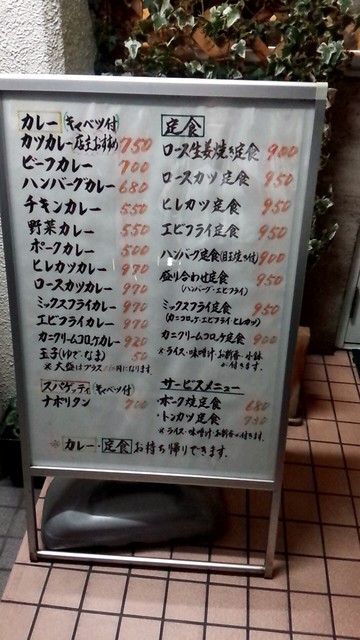 カレー (キャベツ付)
カツカレー 店主おすすめ 750
ビーフカレー 700
ハンバーグカレー 680
チキンカレー 550
野菜カレー 550
ポークカレー 500
ヒレカツカレー 970
ロースカツカレー 970
ミックスフライカレー 970
エビフライカレー 970
カニクリームコロッケカレー 920
玉子(ゆで・なま) 50
※大盛はプラス 円になります。
スパゲッティ (キャベツ付)
ナポリタン 700
定食
ロース生姜焼き定食 900
ロースカツ定食 950
ヒレカツ定食 950
エビフライ定食 950
ハンバーグ定食(目玉焼き付) 900
盛り合わせ定食 950
(ハンバーグ・エビフライ)
ミックスフライ定食 950
(カニコロッケ・エビフライ・ヒレカツ)
カニクリームコロッケ定食 900
※ライス・味噌汁・お新香・小鉢が付きます。
サービスメニュー
・ポーク焼定食 680
・トンカツ定食 730
※ライス・味噌汁・お新香が付きます。
※カレー・定食 お持ち帰りできます。